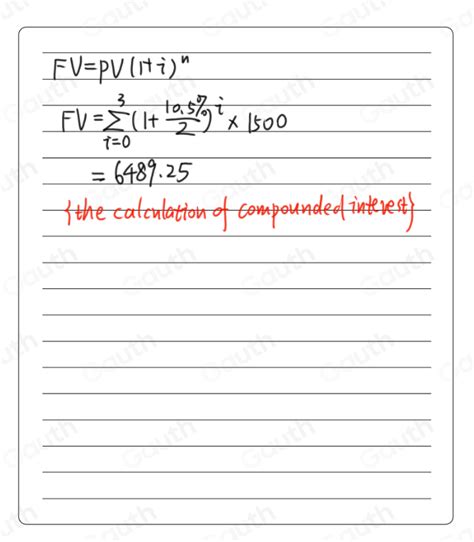 FV=PV(1+i)^n
FV=∑_{i=0}^{3}(1+10.5%/2)^i × 1500
=6489.25
{the calculation of compounded interest}